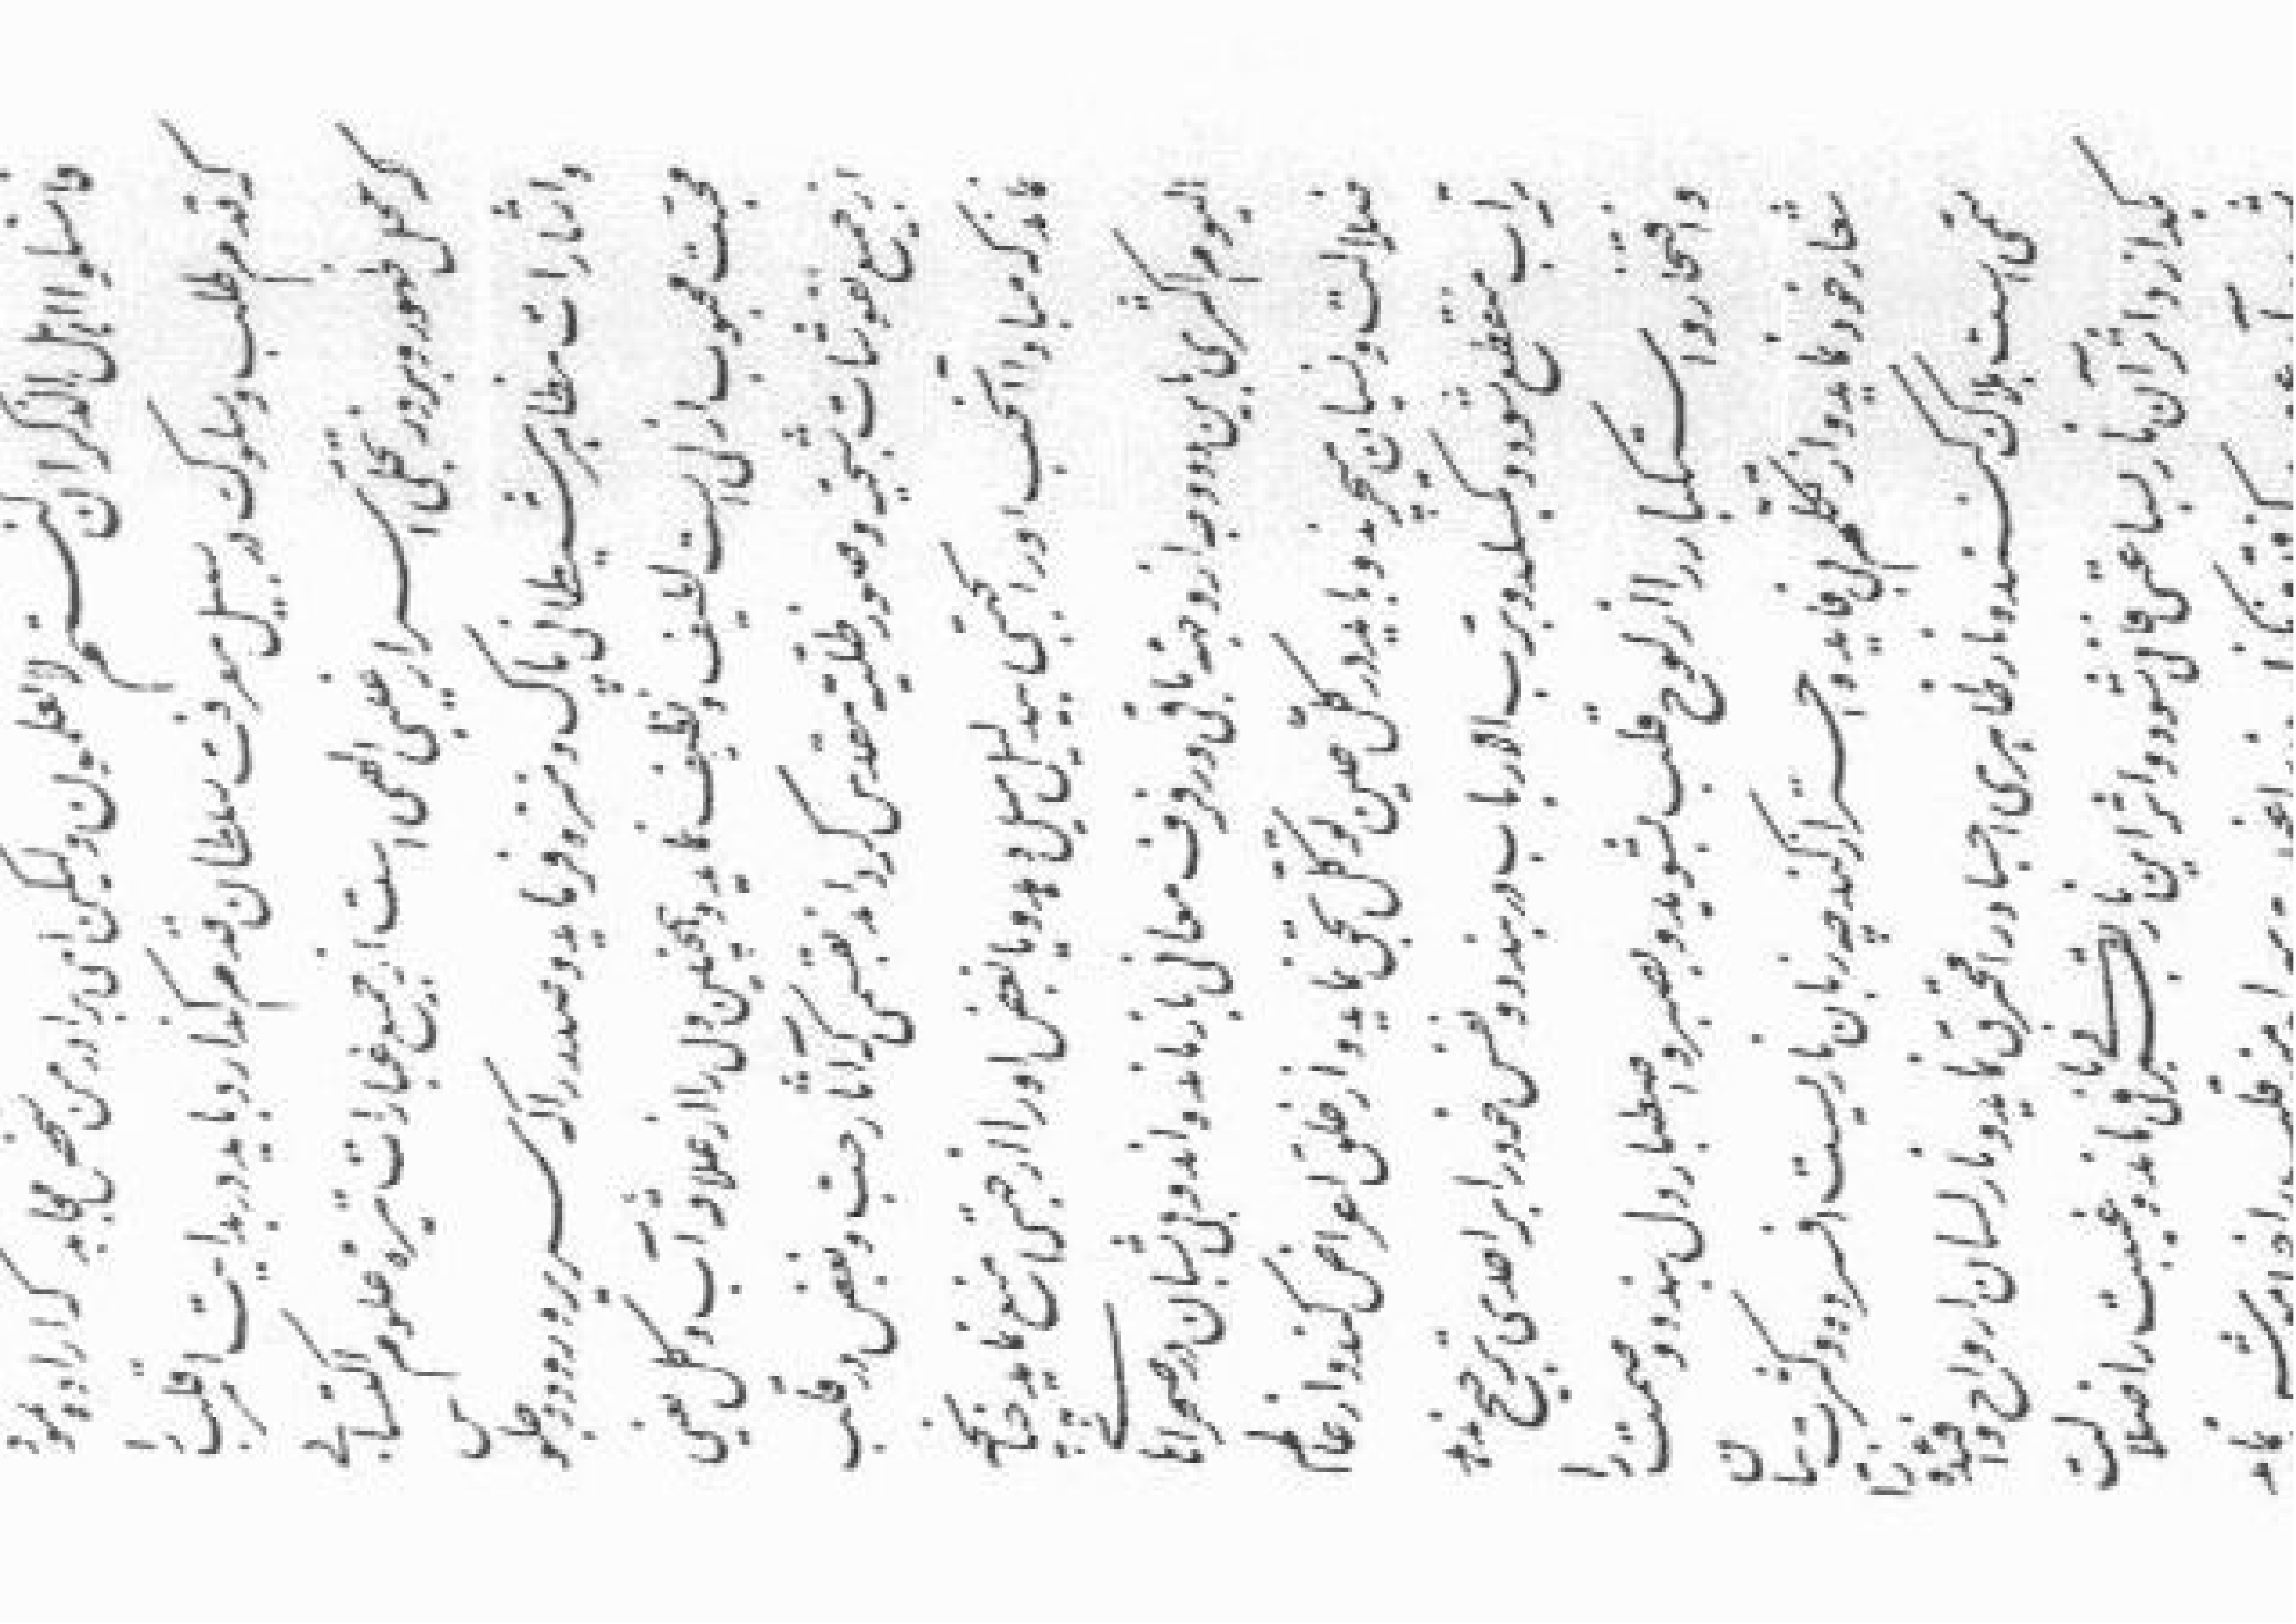 فاسئلوا اهل الذکر ان کنتم لا تعلمون ولیکن ای برادر من شخص مجاهد که اراده نمود
که قدم طلب و سلوک در سبیل معرفت سلطان قدم گذارد باید در بدایت امر قلب را
که محل ظهور و بروز تجلی اسرار غیبی الهی است از جمیع غبارات تیره علوم اکتسابی
و اشارات مظاهر شیطانی پاک و منزه فرماید و صدر را که سریر ورود و جلوس
محبت محبوب ازلی است لطیف و نظیف نماید و همچنین دل را از علاقه آب و گل یعنی
از جمیع نقوشات شبحیه و صور ظلیه مقدس گرداند بقسمی که آثار حب و بغض در قلب
نماند که مبادا آن حب او را بجهتی بیدلیل میل دهد و یا بغض او را از جهتی منع نماید چنانچه
الیوم اکثری باین دو وجه از وجهه باقی و رفرف معانی بازمانده اند و بی شبان در صحراهای
ضلالت و نسیان میچرند و باید در کل حین توکل بحق نماید و از خلق اعراض کند و از عالم
تراب منقطع شود و بگسلد و برب الارباب در بندد و نفس خود را بر احدی ترجیح ندهد
و افتخار و استکبار را از لوح قلب بشوید و بصبر و اصطبار دل بندد و صمت را
شعار خود نماید و از تکلم بیفایده احتراز کند چه زبان ناریست افسرده و کثرت بیان
سمی است هلاک کننده نار ظاهری اجساد را محترق نماید و نار لسان ارواح و افئده را
بگدازد اثر آن نار بساعتی فانی شود و اثر این نار بقرنی باقی ماند و غیبت را ضلالت